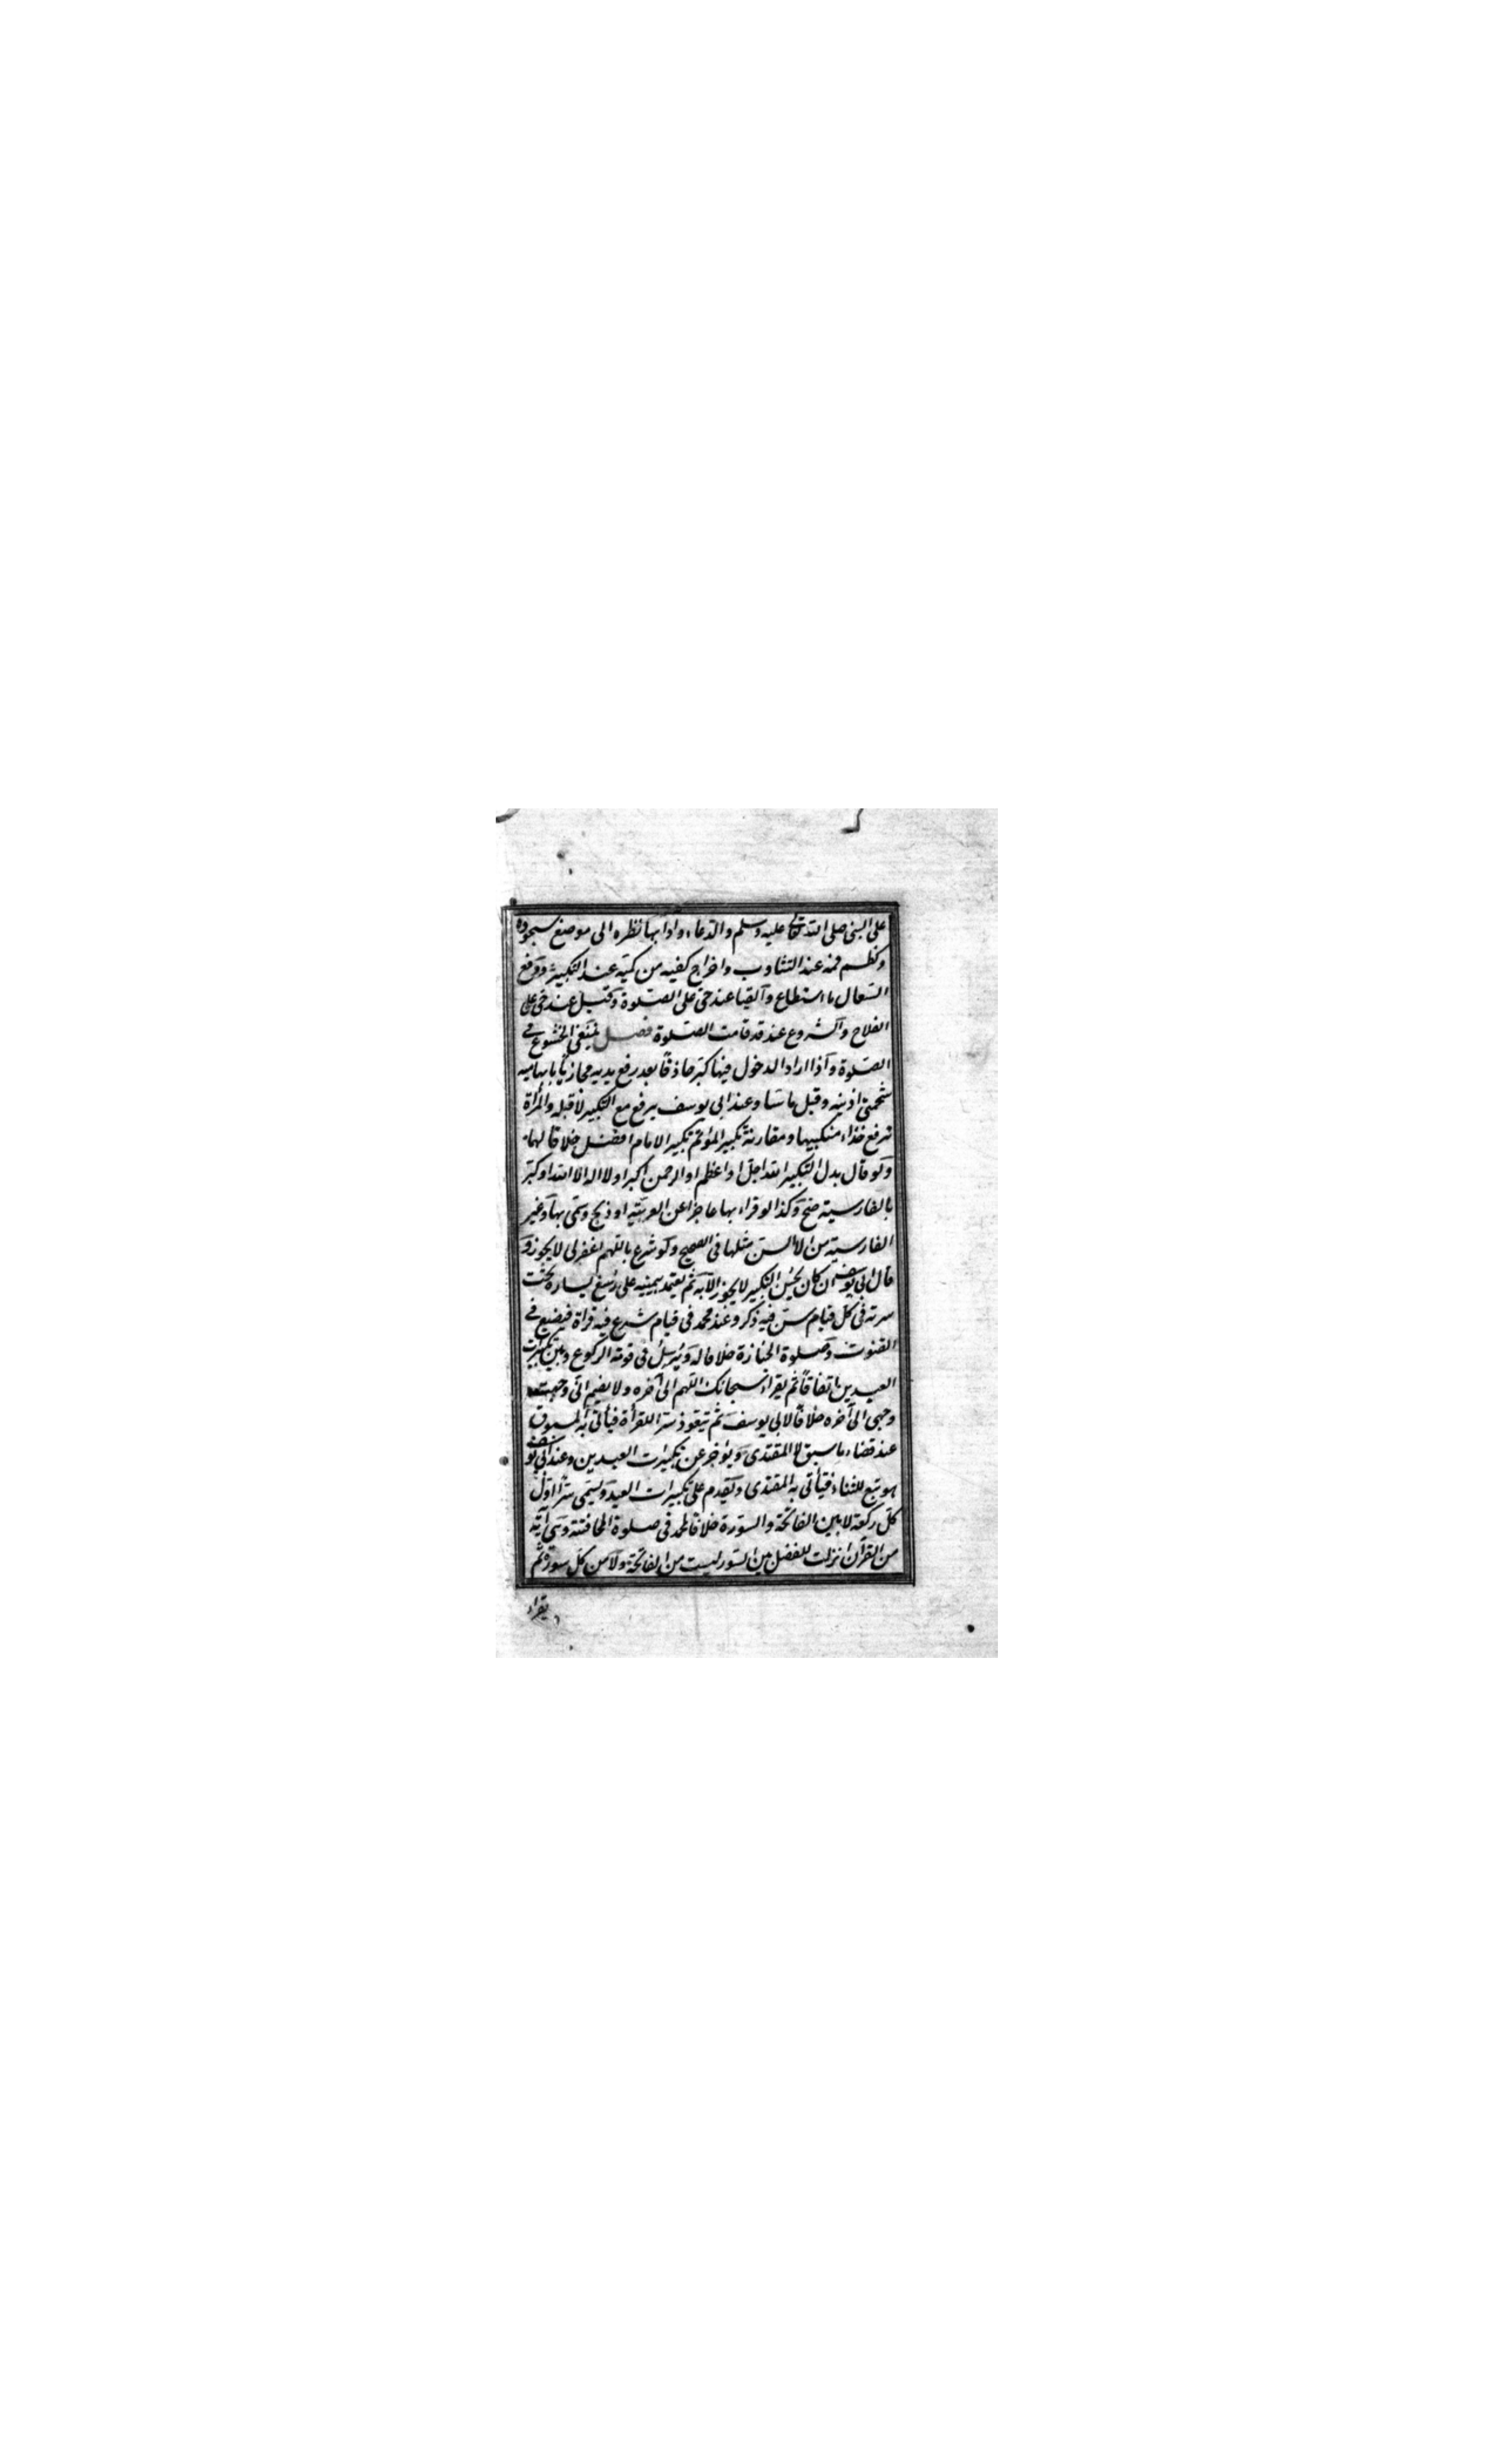 على النبى صلى الله تعالى عليه وسلم والدعاء وادابها نظره الى موضع سجوده
وكظم فمه عند التثاوب واخراج كفيه من كميه عند التكبير ودفع
السعال ما استطاع والقيا عند حى على الصلوة وقيل عند حى على
الفلاح والشروع عند قد قامت الصلوة فصل ينبغى الخشوع فى
الصلوة واذا اراد الدخول فيها كبر حاذفا بعد رفع يديه محاذيا بابهاميه
شحمتى اذنيه وقيل ماسا وعند ابى يوسف يرفع مع التكبير لا قبله والمرأة
ترفع حذاء منكبيها ومقارنة تكبير المؤتم تكبير الامام افضل خلافا لهما
ولو قال بدل التكبير الله اجل او اعظم او الرحمن اكبر او لا اله الا الله او كبر
بالفارسية صح وكذا لو قراء بها عاجزا عن العربية او ذبح وسمى بها وغير
الفارسية من الالسن مثلها فى الصحيح ولو شرع باللهم اغفرلى لا يجوز و
قال ابى يوسف ان كان يحسن التكبير لا يجوز الا به ثم يعتمد بيمينه على رسغ يساره تحت
سرته فى كل قيام سن فيه ذكر وعند محمد فى قيام شرع فيه قراة فيضع فى
القنوت وصلوة الجنازة خلافا له ويرسل فى قومة الركوع وبين تكبيرات
العيدين اتفاقا ثم يقراء سبحانك اللهم الى آخره ولا يضم انى وجهت
وجهى الى آخره خلافا لابى يوسف ثم يتعوذ سرا للقرأة فيأتى به المسبوق
عند قضاء ما سبق لا المقتدى ويؤخر عن تكبيرات العيدين وعند ابى يوسف
هو تبع للثناء فيأتى به المقتدى ويقدم على تكبيرات العيد ويسمى سرا اول
كل ركعة لا بين الفاتحة والسورة خلافا لمحمد فى صلوة المخافتة وهى آية
من القرآن انزلت للفصل بين السور ليست من الفاتحة ولا من كل سورة ثم
يقراء